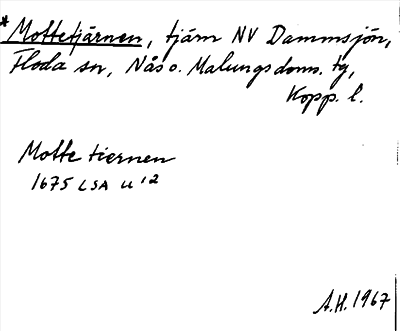 * Mottetjärnen, tjärn NV Dammsjön,
Floda sn, Nås o. Malungs doms. tg,
Kopp. l.
Motte tiernen
1675 LSA U 12
A.H. 1967